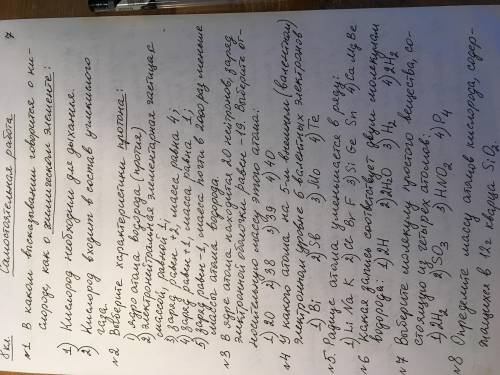 8кл. Самостоятельная работа 7
№1 В каком высказывании говорится о ки-
слороде, как о химическом элементе:
1) Кислород необходим для дыхания.
2) Кислород входит в состав углекислого
газа.
№2 Выберите характеристики протона:
1) ядро атома водорода (протия)
2) электронейтральная элементарная частица с
массой, равной 1;
3) заряд равен +2, масса равна 4;
4) заряд равен +1, масса равна 1;
5) заряд равен -1, масса почти в 2000 раз меньше
массы атома водорода.
№3 В ядре атома находятся 20 нейтронов, заряд
электронной оболочки равен -19. Выберите от-
носительную массу этого атома:
1) 20 2) 38 3) 39 4) 40
№4 У какого атома на 5-м внешнем (валентном)
электронном уровне 6 валентных электронов
1) Bi 2) Sb 3) Mo 4) Te
№5. Радиус атома уменьшается в ряду:
1) Li Na K 2) Cl Br F 3) Si Ge Sn 4) Ca Mg Be
№6 Какая запись соответствует двум молекулам
водорода: 1) 2H 2) 2H2O 3) H2 4) 2H2
№7 Выберите молекулу простого вещества, со-
стоящую из четырёх атомов:
1) 2H2 2) SO3 3) HNO2 4) P4
№8 Определите массу атомов кислорода, содер-
жащихся в 12 г кварца SiO2.